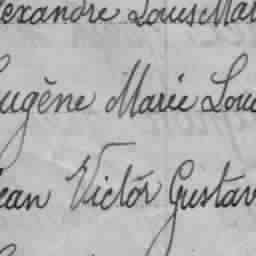 lexandre Louis Mar
ugène Marie Lou
ean Victor Gustav